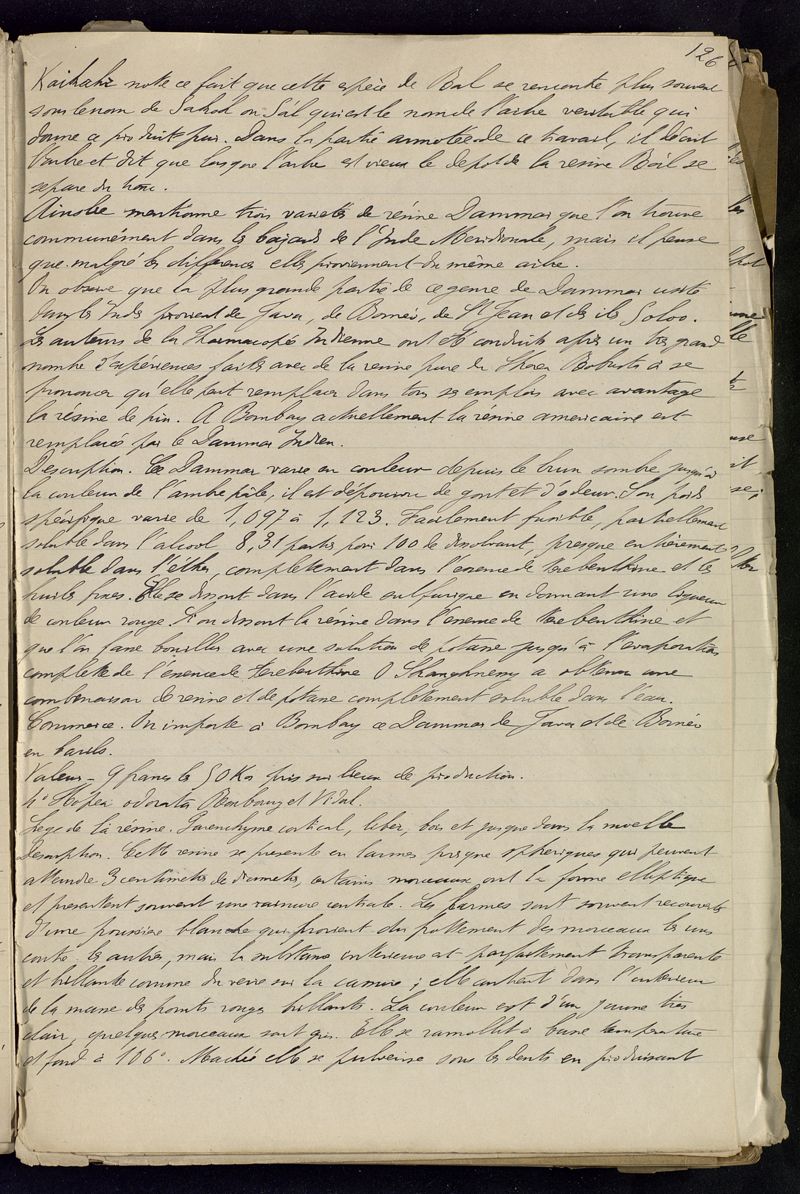 126
Kaihahi note ce fait que cette espèce de Bal se rencontre plus souvent
sous le nom de Sahod ou Sal qui est le nom de l'arbre veritable qui
donne ce produit pur. Dans la partie annotée de ce travail, il décrit
l'arbre et dit que lorsque l'arbre est vieux le depot de la resine Bâl se
separe du tronc.
Ainslie mentionne trois varietés de résine Dammar que l'on trouve
communément dans les bazars de l'Inde Meridionale, mais il pense
que malgré les differences elles proviennent du même arbre.
On observe que la plus grande partie de ce genre de Dammar usité
dans les Indes provient de Java, de Borneo, de St Jean et des iles Soloo.
Les auteurs de la Pharmacopée Indienne ont été conduits après un tres grand
nombre d'expériences faites avec de la resine pure du Shorea Robusta à se
prononcer qu'elle peut remplacer dans tous ses emplois avec avantage
la résine de pin. A Bombay actuellement la resine americaine est
remplacée par le Dammar Indien.
Description. Ce Dammar varie en couleur depuis le brun sombre jusqu'à
la couleur de l'ambre pâle, il est dépourvu de gout et d'odeur. Son poids
spécifique varie de 1,097 à 1,123. Facilement fusible, partiellement
soluble dans l'alcool 8,31 parties pour 100 de dissolvant, presque entièrement
soluble dans l'ether, completement dans l'essence de terebenthine et les
huiles fixes. Elle se dissout dans l'acide sulfurique en donnant une liqueur
de couleur rouge. Si on dissout la résine dans l'essence de terebenthine et
que l'on fasse bouillir avec une solution de potasse jusqu'à l'evaporation
complete de l'essence de terebenthine O Shanghnessy a obtenu une
combinaison de resine et de potasse complétement soluble dans l'eau.
Commerce. On importe à Bombay ce Dammar de Java et de Borneo
en barils.
Valeur - 9 francs les 50 Kos pris sur lieux de production.
4° Hopea odorata Roxbourg et Vidal.
Siege de la résine. Parenchyme cortical, liber, bois et jusque dans la moelle
Description. Cette resine se presente en larmes presque spheriques qui peuvent
atteindre 3 centimètres de diametre, certains morceaux ont la forme elliptique
et presentent souvent une rainure centrale. Les larmes sont souvent recouvertes
d'une poussière blanche qui provient du frottement des morceaux les uns
contre les autres, mais la substance interieure est parfaitement transparente
et brillante comme du verre sur la cassure ; elle contient dans l'interieur
de la masse des points rouges brillants. La couleur est d'un jaune très
clair, quelques morceaux sont gris. Elle se ramollit à basse temperature
et fond à 106°. Machée elle se pulverise sous les dents en produisant